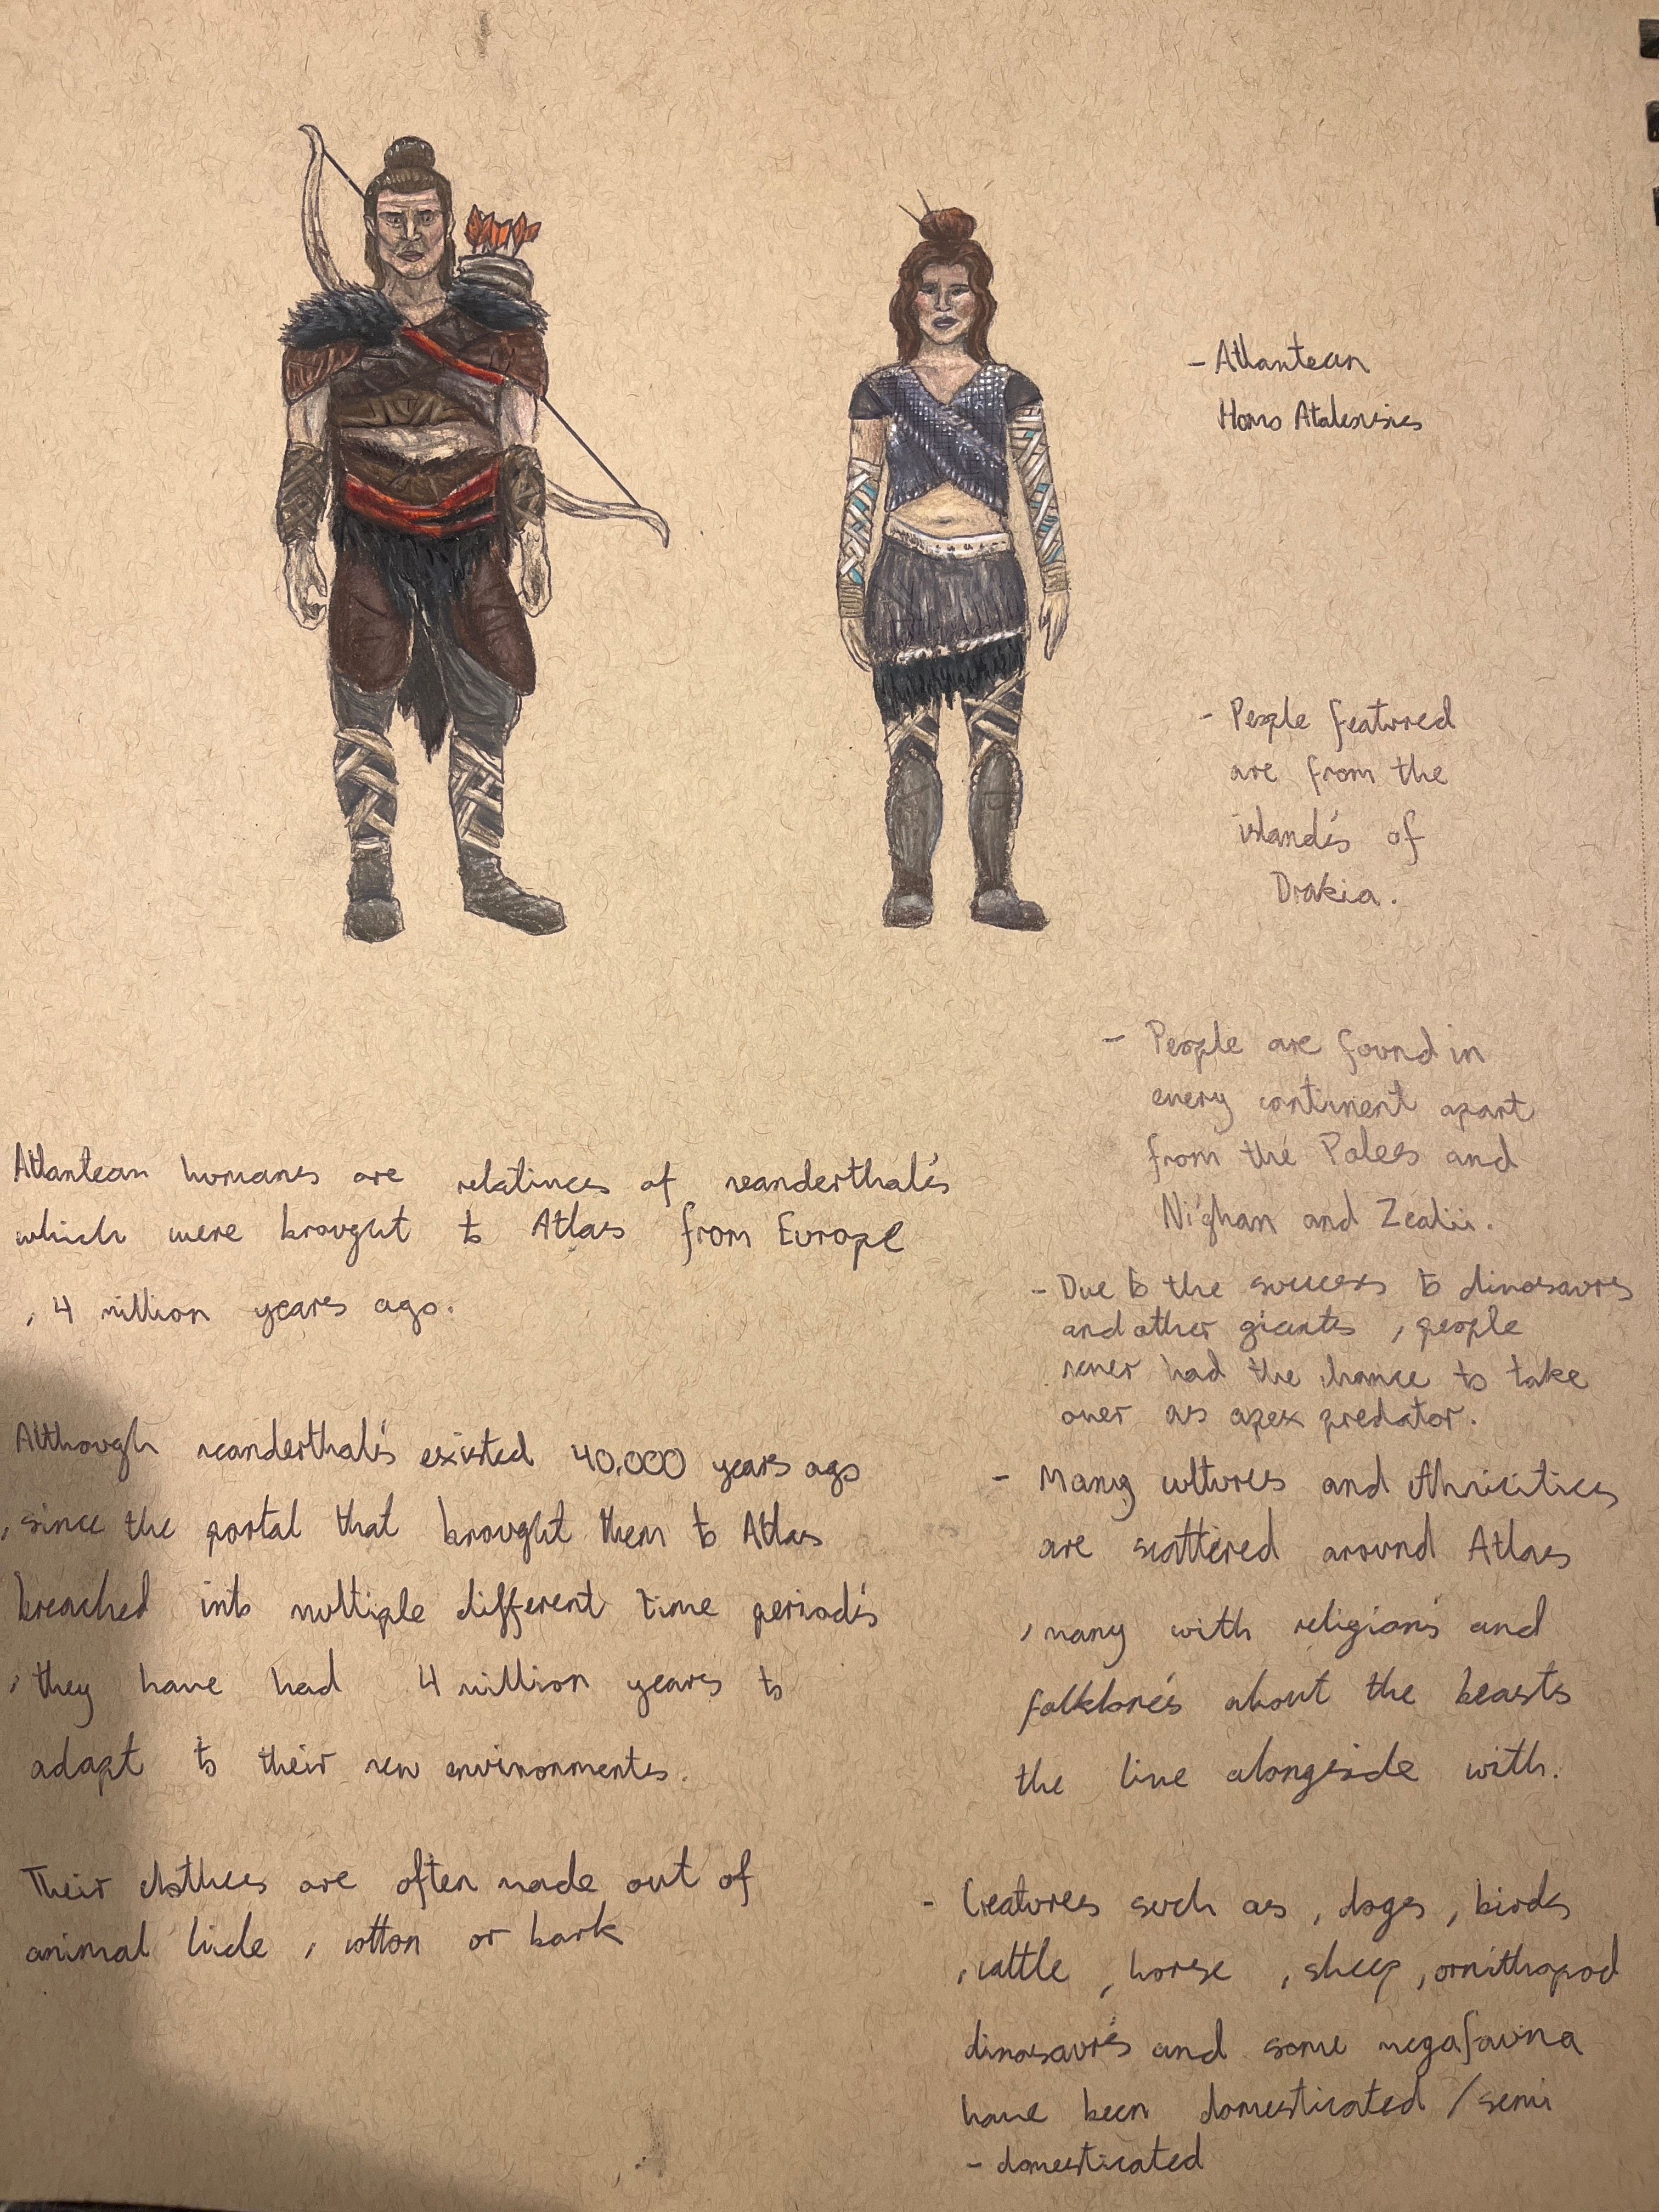 - Atlantean
Homo Atalensies
- People featured
are from the
island's of
Drakia.
- People are found in
every continent apart
from the Poles and
Nighan and Zealii.
- Due to the success to dinosaurs
and other giants , people
never had the chance to take
over as apex predator.
- Many cultures and ethnicities
are scattered around Atlas
, many with religion's and
folklore's about the beasts
the live alongside with.
- Creatures such as , dogs , birds
, cattle , horse , sheep , ornithopod
dinosaur's and some megafauna
have been domesticated / semi
- domesticated
Atlantean humans are relatives of neanderthal's
which were brought to Atlas from Europe
, 4 million years ago.
Although neanderthal's existed 40,000 years ago
, since the portal that brought them to Atlas
breached into multiple different time period's
, they have had 4 million years to
adapt to their new environments.
Their clothes are often made out of
animal hide , cotton or bark